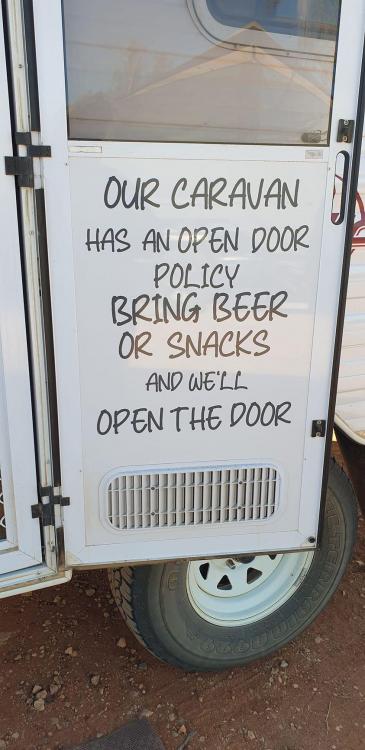 OUR CARAVAN
HAS AN OPEN DOOR
POLICY
BRING BEER
OR SNACKS
AND WE'LL
OPEN THE DOOR